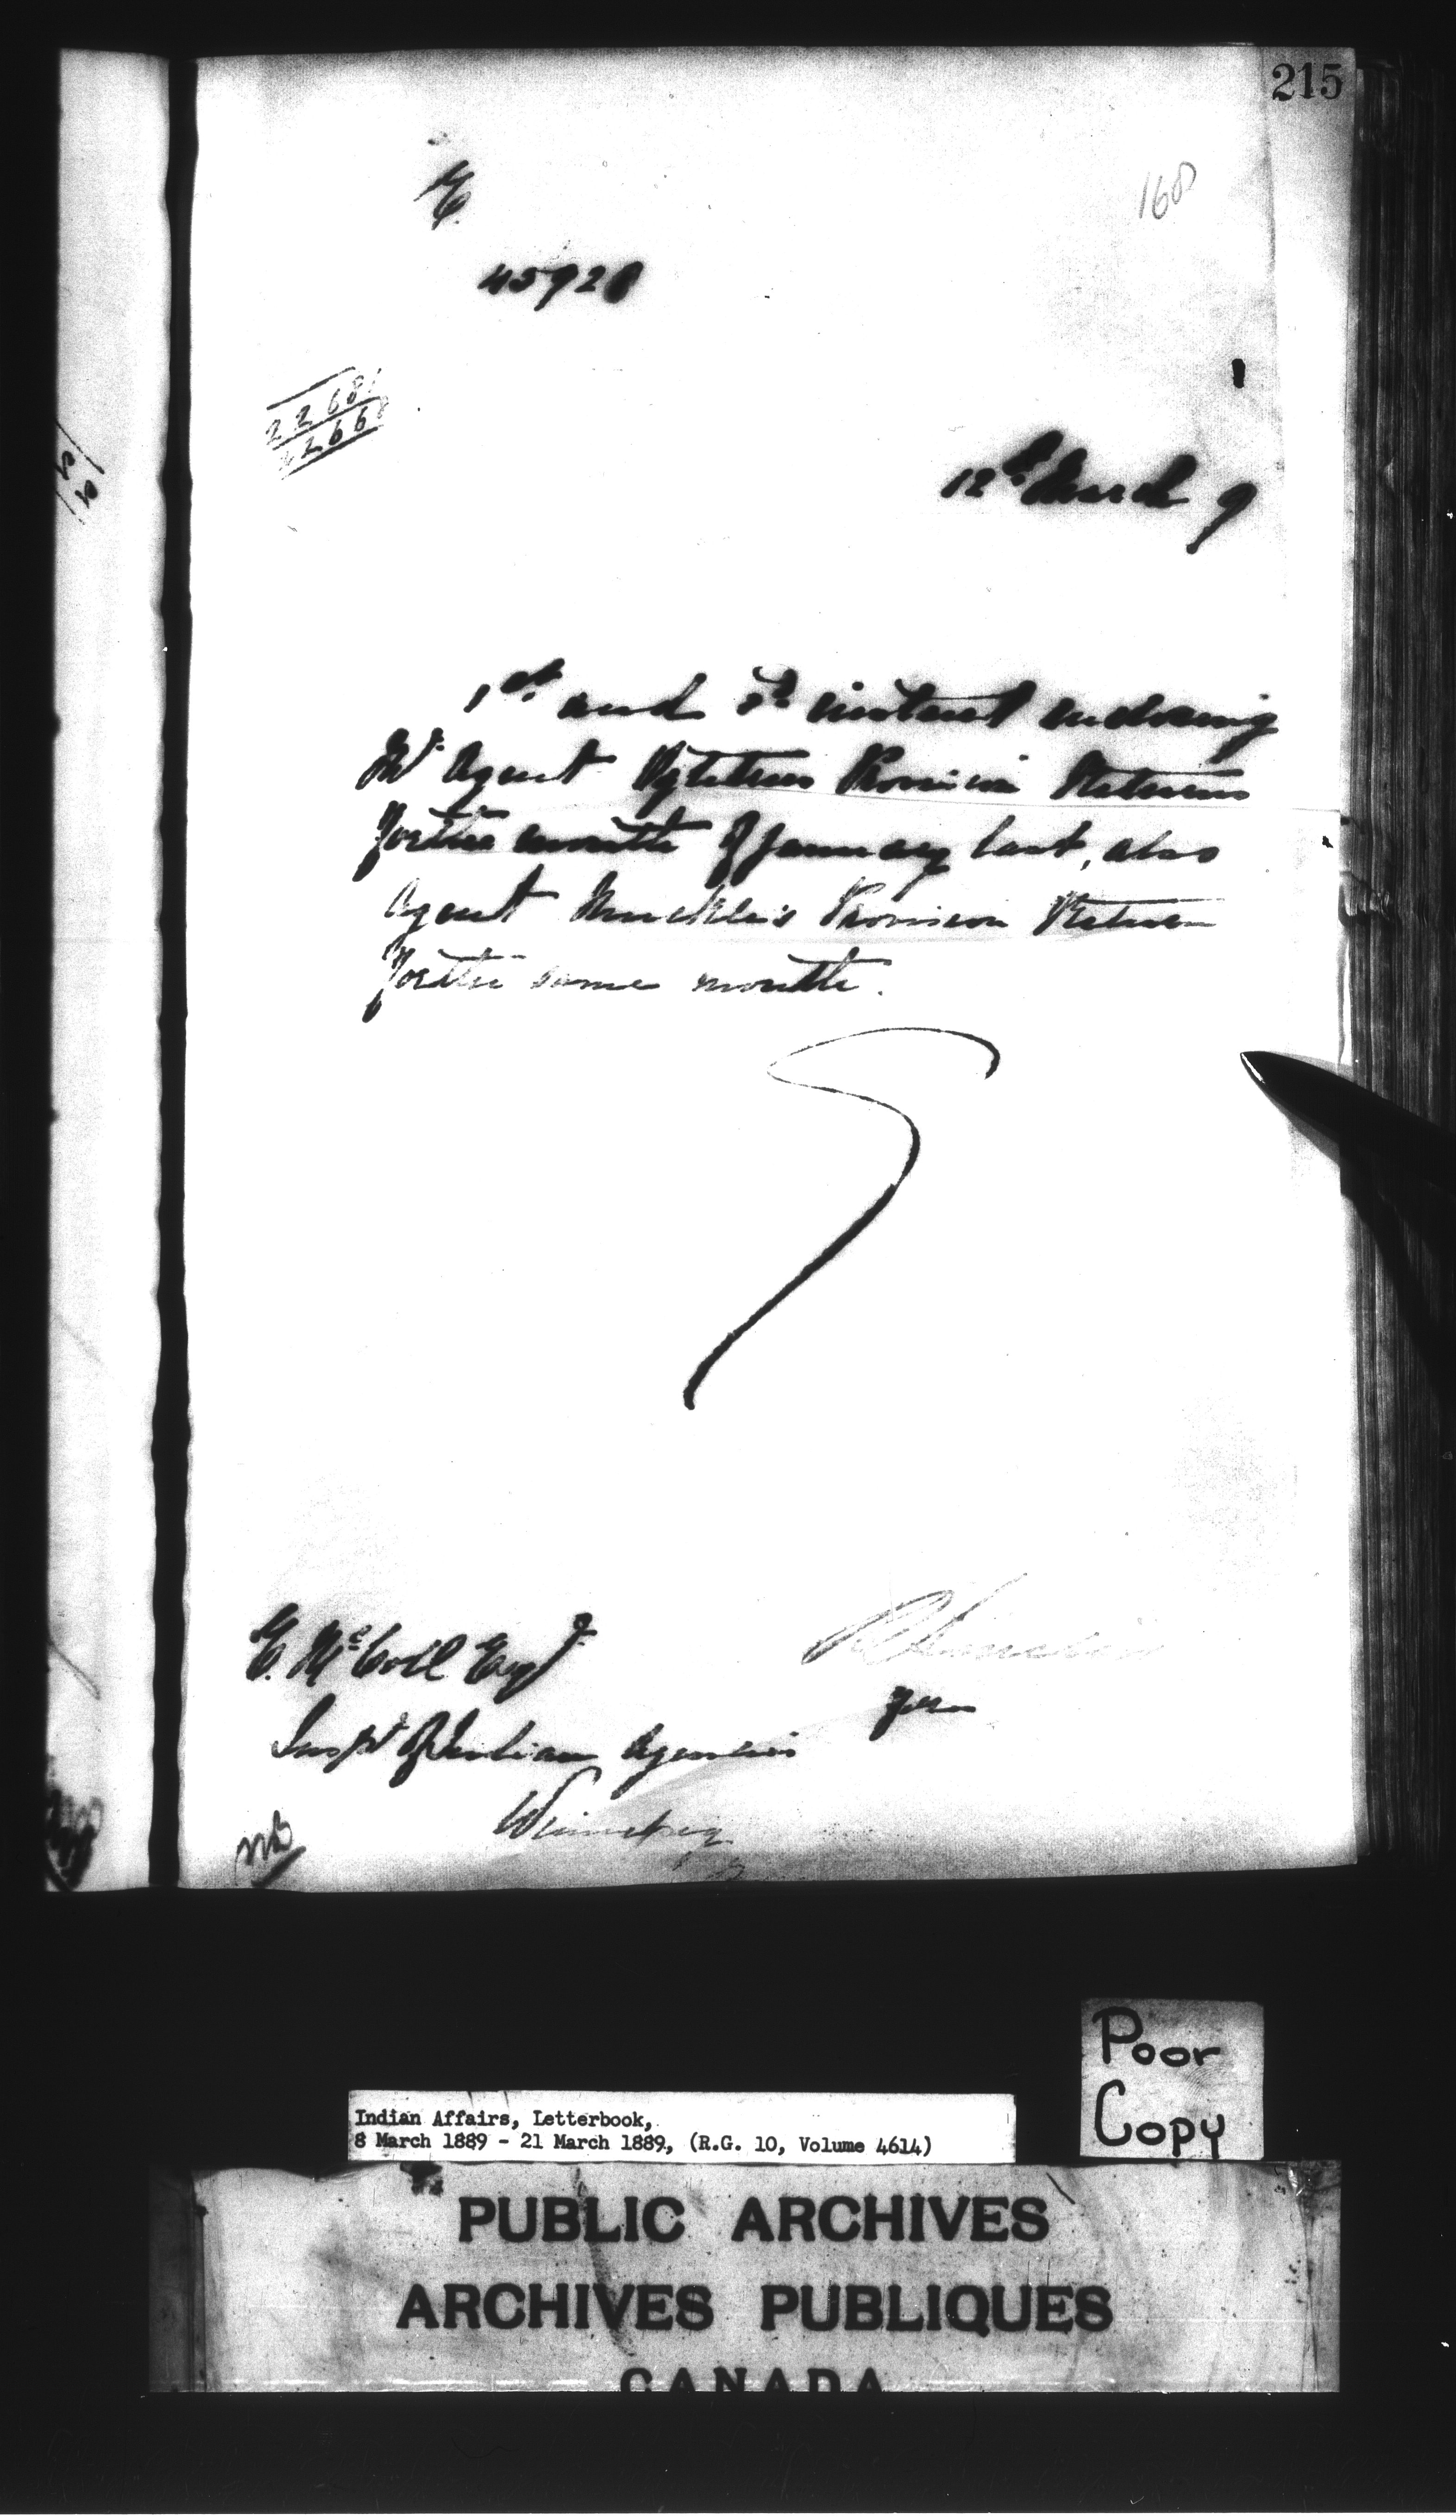 215
168
E.
45928
2268
266
12th March 9
1st and 5th instant enclosing
Mr Agent Ogletree's Provision Returns
for the month of January last, also
Agent Muckle's Provision Return
for the same month.
R Sinclair
E. McColl Esqr
Inspr of Indian Agencies
Winnipeg
Poor
Copy
Indian Affairs, Letterbook,
8 March 1889 - 21 March 1889, (R.G. 10, Volume 4614)
PUBLIC ARCHIVES
ARCHIVES PUBLIQUES
CANADA